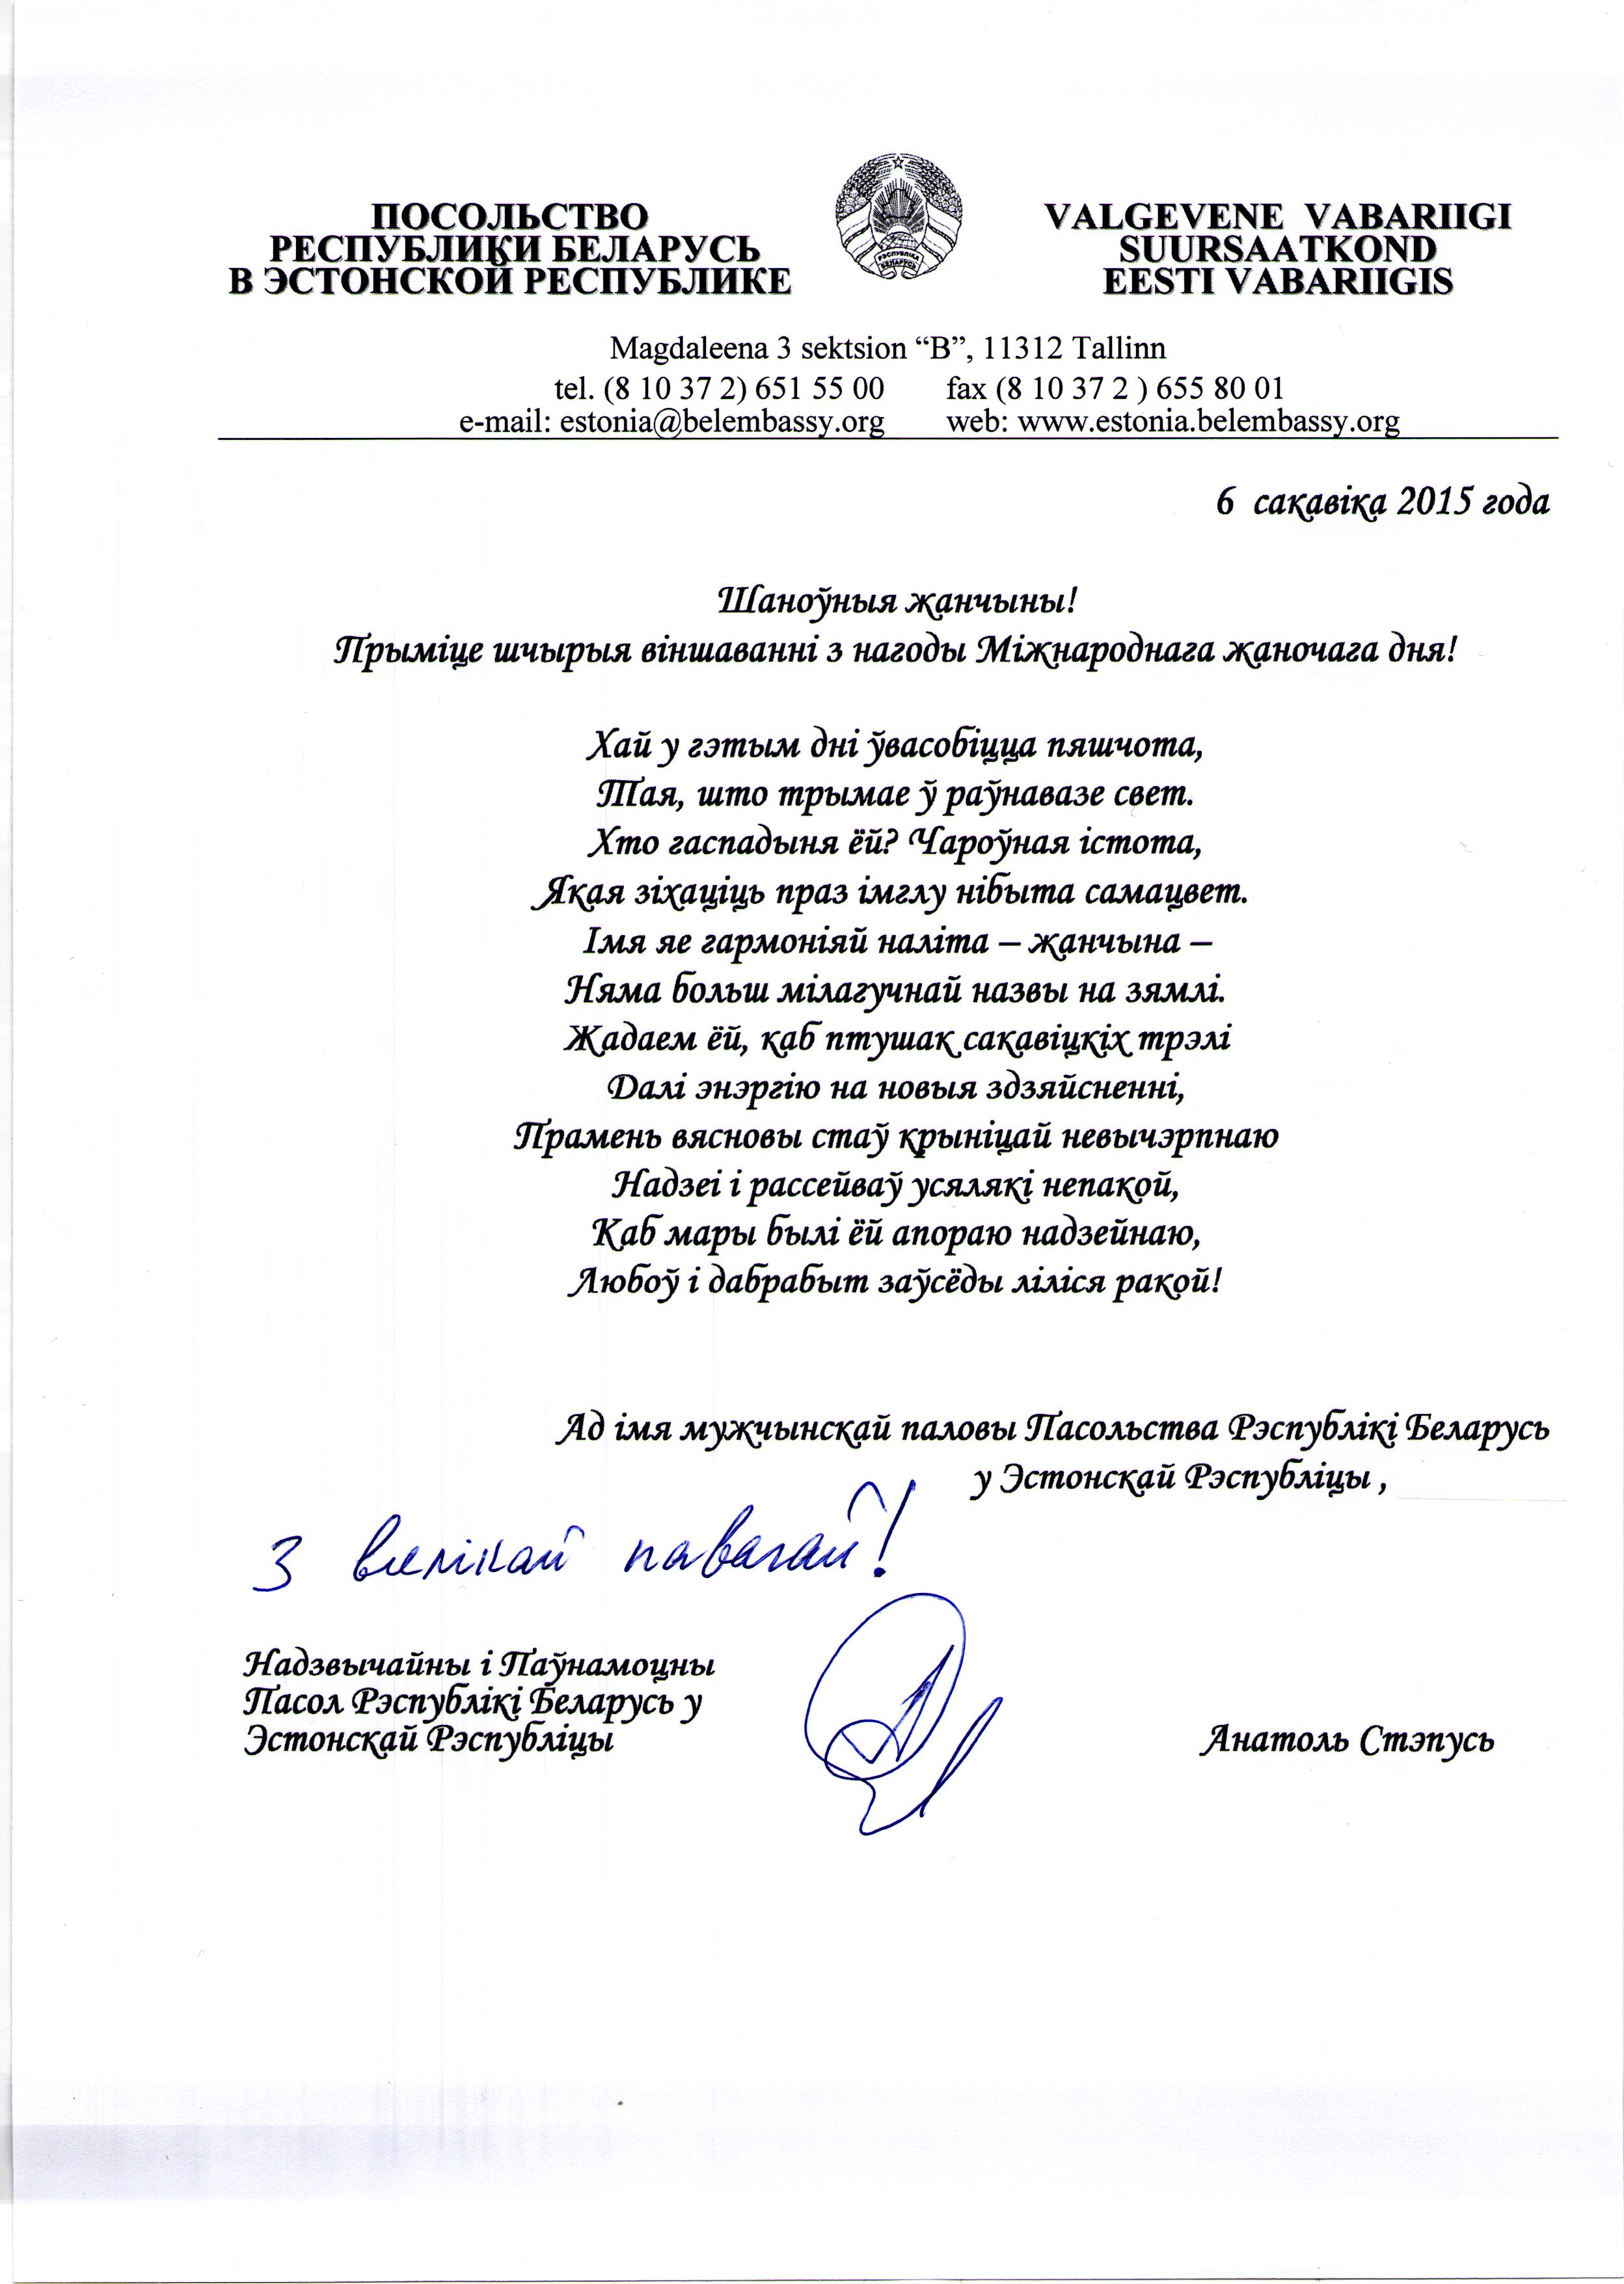 ПОСОЛЬСТВО
РЕСПУБЛИКИ БЕЛАРУСЬ
В ЭСТОНСКОЙ РЕСПУБЛИКЕ
РЭСПУБЛІКА
БЕЛАРУСЬ
VALGEVENE VABARIIGI
SUURSAATKOND
EESTI VABARIIGIS
Magdaleena 3 sektsion “B”, 11312 Tallinn
tel. (8 10 37 2) 651 55 00 fax (8 10 37 2 ) 655 80 01
e-mail: estonia@belembassy.org web: www.estonia.belembassy.org
6 сакавіка 2015 года
Шаноўныя жанчыны!
Прыміце шчырыя віншаванні з нагоды Міжнароднага жаночага дня!
Хай у гэтым дні ўвасобіцца пяшчота,
Тая, што трымае ў раўнавазе свет.
Хто гаспадыня ёй? Чароўная істота,
Якая зіхаціць праз імглу нібыта самацвет.
Імя яе гармоніяй наліта – жанчына –
Няма больш мілагучнай назвы на зямлі.
Жадаем ёй, каб птушак сакавіцкіх трэлі
Далі энэргію на новыя здзяйсненні,
Прамень вясновы стаў крыніцай невычэрпнаю
Надзеі і рассейваў усялякі непакой,
Каб мары былі ёй апораю надзейнаю,
Любоў і дабрабыт заўсёды ліліся ракой!
Ад імя мужчынскай паловы Пасольства Рэспублікі Беларусь
у Эстонскай Рэспубліцы ,
З вялікай павагай!
Надзвычайны і Паўнамоцны
Пасол Рэспублікі Беларусь у
Эстонскай Рэспубліцы
Анатоль Стэпусь